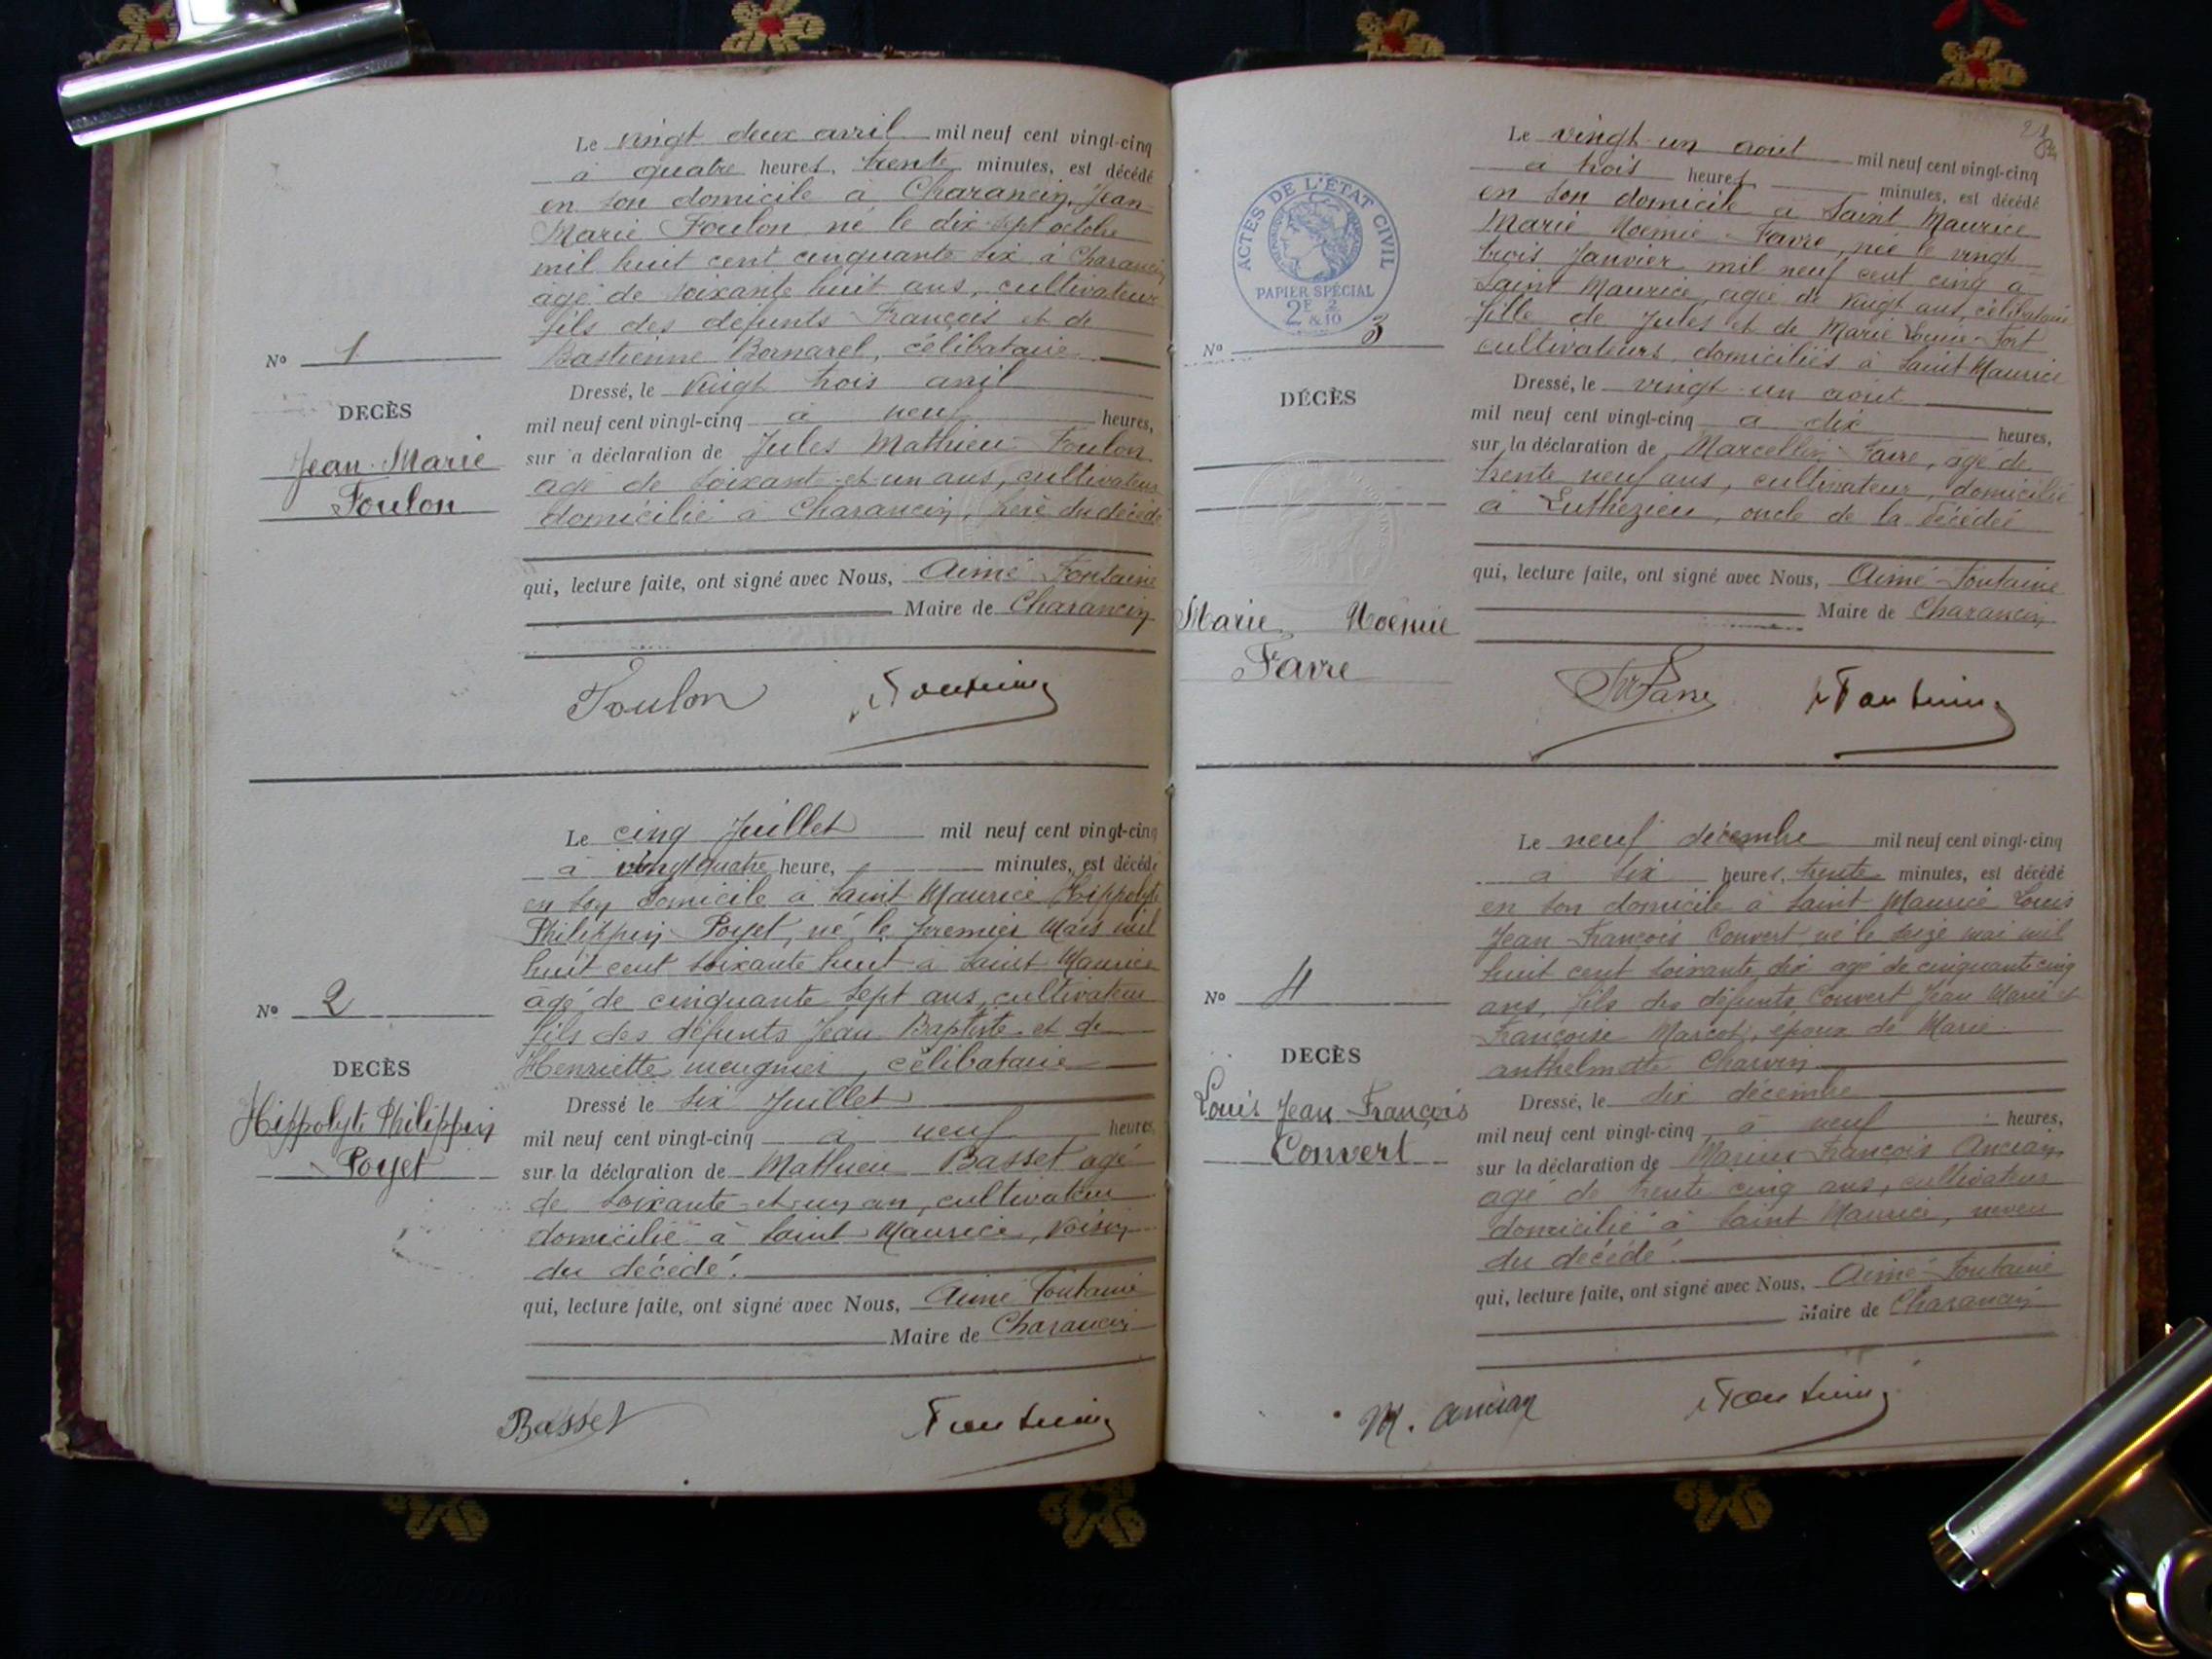 Le vingt deux avril mil neuf cent vingt-cinq
à quatre heures, trente minutes, est décédé
en son domicile à Charancin, Jean
Marie Foulon, né le dix-sept octobre
mil huit cent cinquante six à Charancin
âgé de soixante huit ans, cultivateur
fils des défunts François et de
Bastienne Bornarel, célibataire
Dressé, le vingt trois avril
mil neuf cent vingt-cinq à neuf heures,
sur a déclaration de Jules Mathieu Foulon
agé de soixant et un ans, cultivateur
domicilié à Charancin, frère du décédé
qui, lecture faite, ont signé avec Nous, Aimé Fontaine
Maire de Charancin
Foulon Fontaine
No 1
DECÈS
Jean-Marie
Foulon
Le cinq Juillet mil neuf cent vingt-cinq
à vingt quatre heure, minutes, est décédé
en son domicile à Saint Maurice Hippolyte
Philippin Poyet, né le premier Mars mil
huit cent soixante huit à Saint Maurice
âgé de cinquante sept ans, cultivateur
fils des défunts Jean Baptiste et de
Henriette meugnier, célibataire
Dressé le six Juillet
mil neuf cent vingt-cinq à neuf heures
sur la déclaration de Mathieu Basset agé
de soixante-et-un an, cultivateur
domicilié à Saint Maurice, voisin
du décédé.
qui, lecture faite, ont signé avec Nous, Aimé Fontaine
Maire de Charancin
Basset Fontaine
No 2
DECÈS
Hippolyte Philippin
Poyet
Le vingt-un août mil neuf cent vingt-cinq
à trois heures minutes, est décédé
en son domicile à Saint Maurice
Marie Noémie Favre, née le vingt
trois Janvier mil neuf cent cinq à
Saint Maurice, agée de vingt ans, célibataire
fille de Jules et de Marie Louise Fort
cultivateurs domiciliés à Saint Maurice
Dressé, le vingt-un août
mil neuf cent vingt-cinq à dix heures,
sur la déclaration de Marcellin Favre, agé de
trente neuf ans, cultivateur, domicilié
à Luthézieu, oncle de la décédée
qui, lecture faite, ont signé avec Nous, Aimé Fontaine
Maire de Charancin
Favre Fontaine
ACTES DE L'ÉTAT CIVIL
PAPIER SPÉCIAL
2F 2
&10
No 3
DÉCÈS
Marie Noémie
Favre
Le neuf décembre mil neuf cent vingt-cinq
à six heures, trente minutes, est décédé
en son domicile à Saint Maurice Louis
Jean François Convert né le seize mai mil
huit cent soixante dix agé de cinquante cinq
ans, fils des défunts Convert Jean Marie et
Françoise Marcot, époux de Marie
anthelmette Charvin
Dressé, le dix décembre
mil neuf cent vingt-cinq à neuf heures,
sur la déclaration de Marius François Ancian
agé de trente cinq ans, cultivateur
domicilié à Saint Maurice, neveu
du décédé.
qui, lecture faite, ont signé avec Nous, Aimé Fontaine
Maire de Charancin
M. Ancian Fontaine
No 4
DECÈS
Louis Jean François
Convert